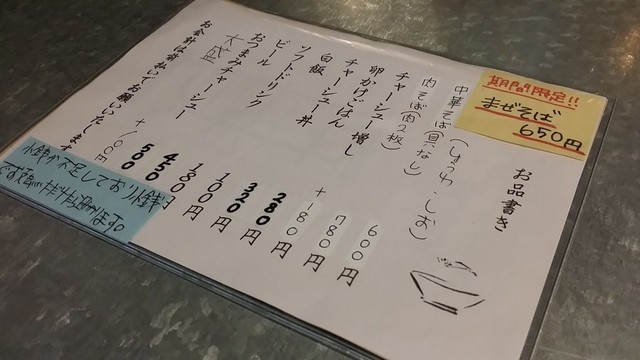 期間限定!!
まぜそば
650円
お品書き
中華そば(具なし)(しょうゆ しお) 600円
肉そば(肉2枚) 780円
チャーシュー増し +180円
卵かけごはん 280円
チャーシュー丼 320円
白飯 100円
ソフトドリンク 180円
ビール 450円
おつまみチャーシュー 500
大盛 +100円
お会計は前払いでお願いします
小銭が不足しており小銭
ですと助かります。